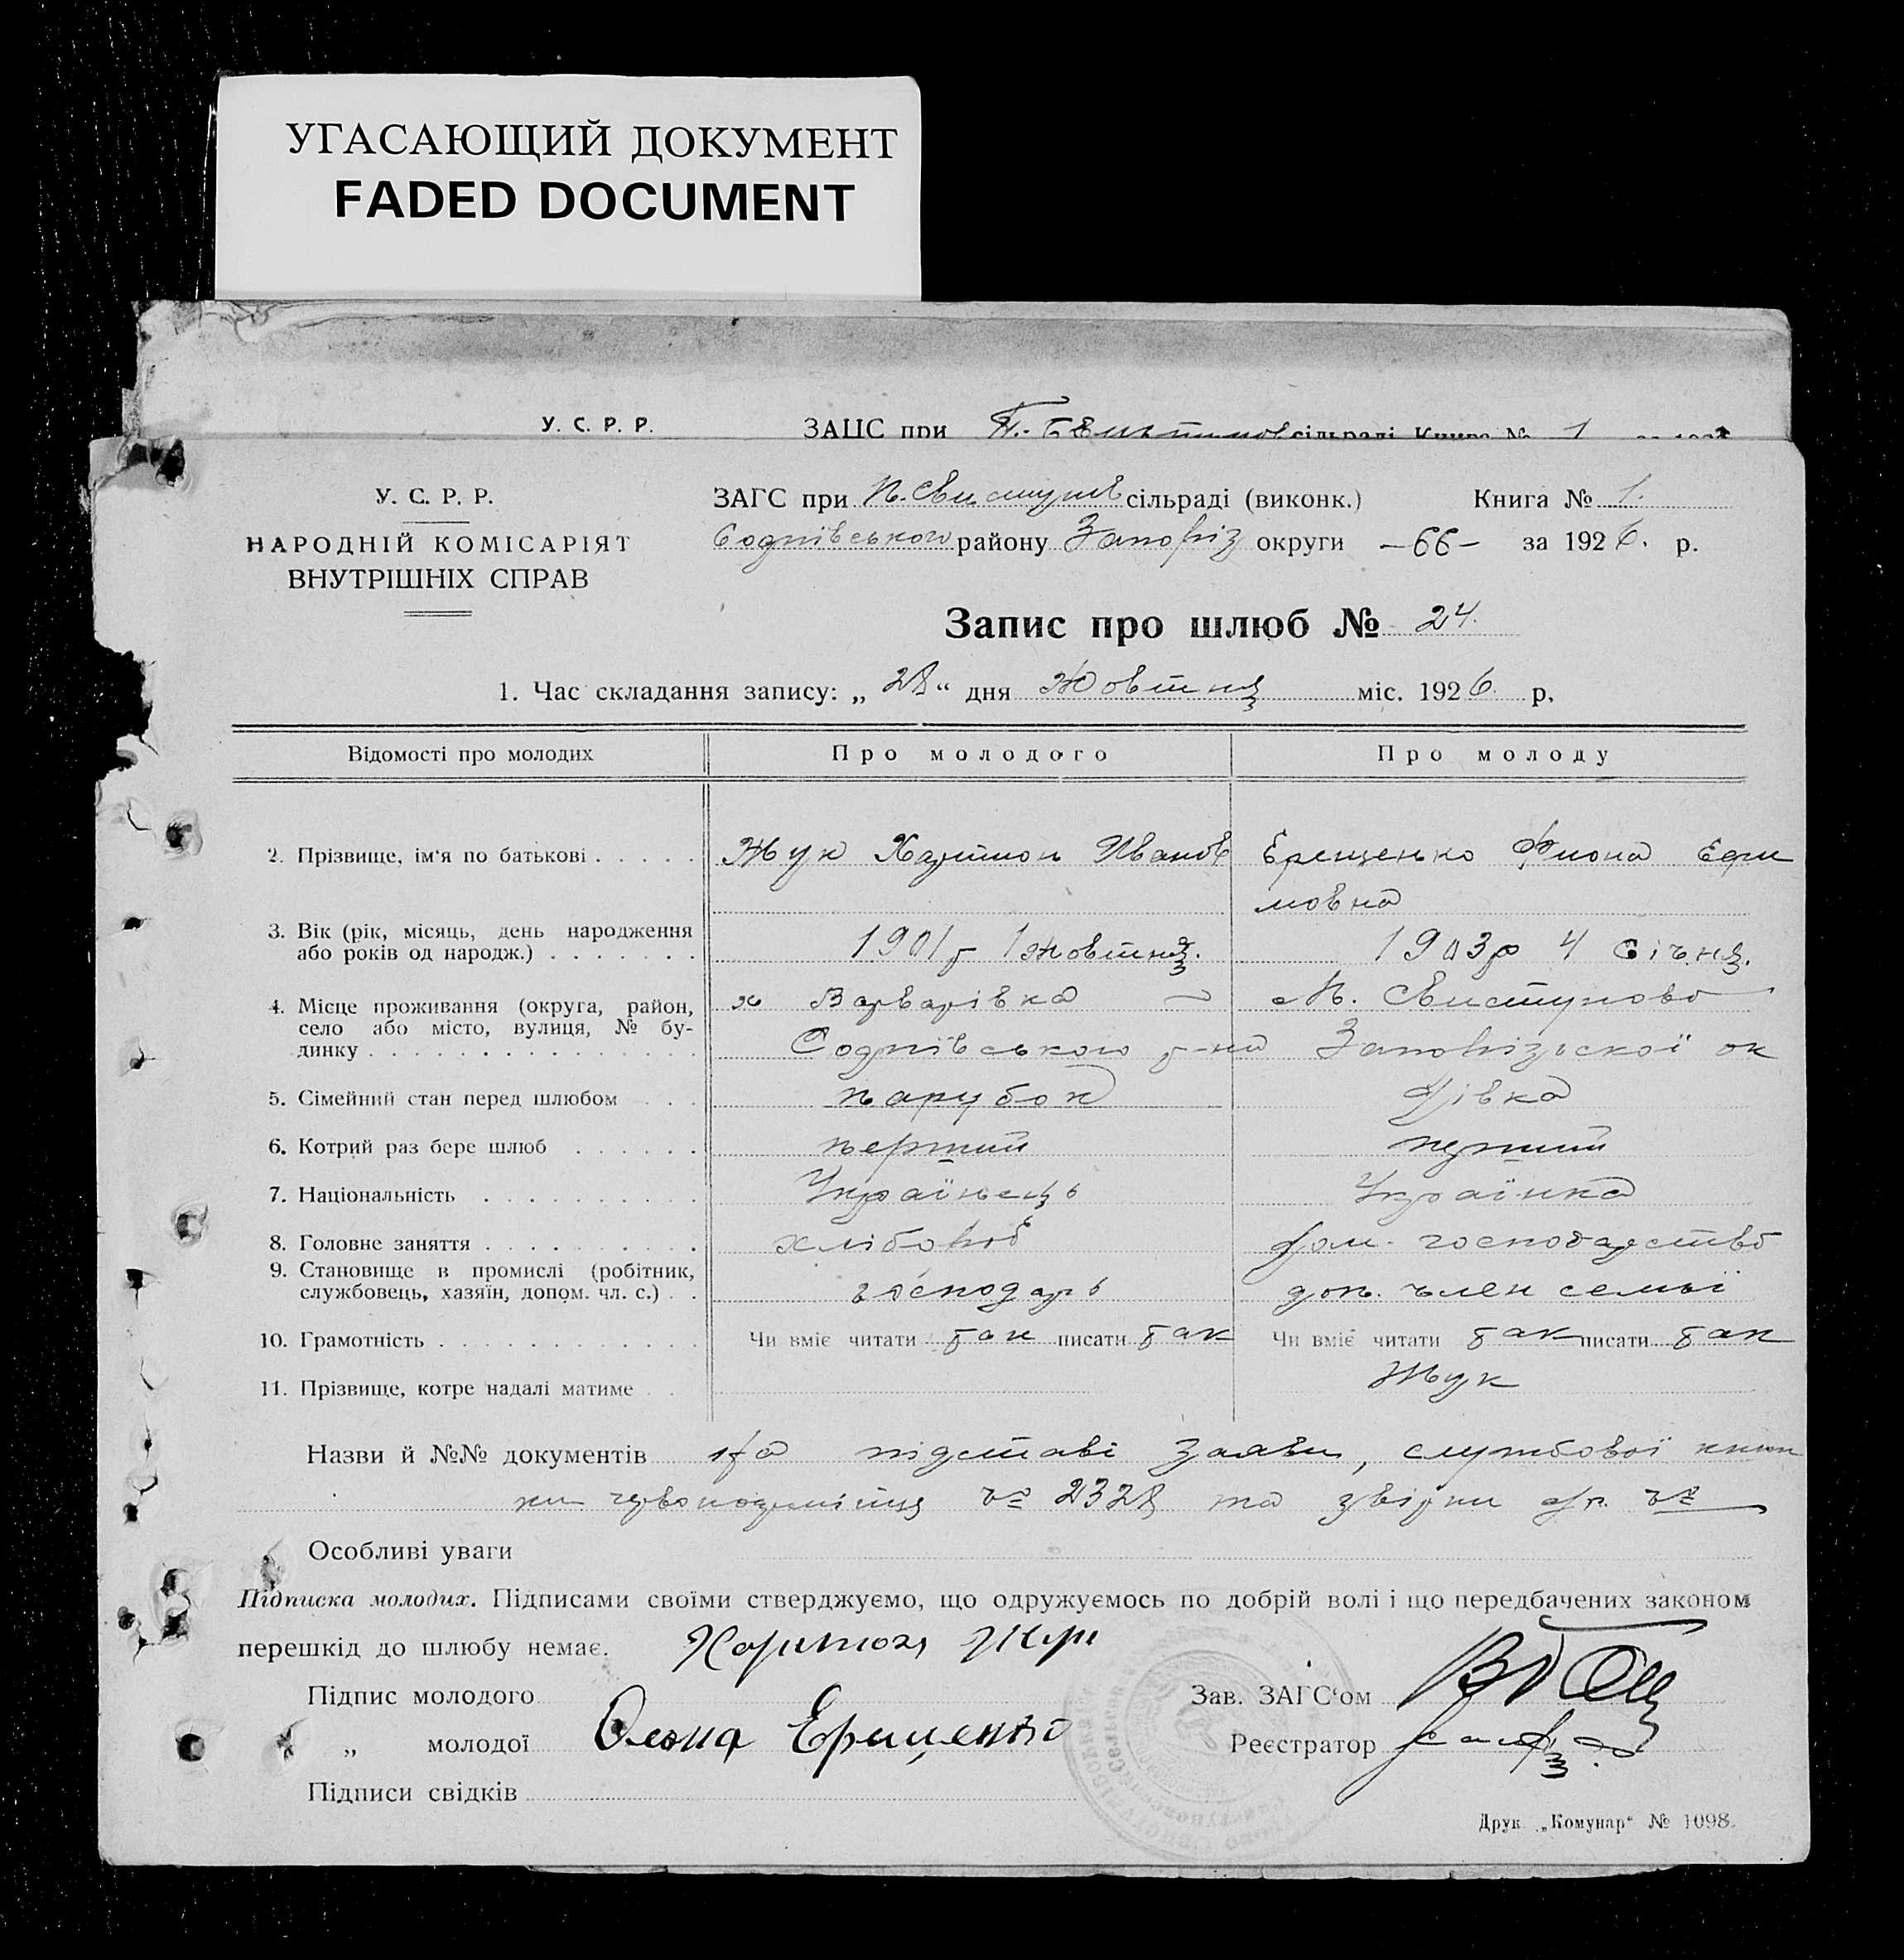 УГАСАЮЩИЙ ДОКУМЕНТ
FADED DOCUMENT
У. С. Р. Р. ЗАЦС при сільраді Книга № 1
У. С. Р. Р.
НАРОДНІЙ КОМІСАРІЯТ
ВНУТРІШНІХ СПРАВ
ЗАГС при П. Свистунів сільраді (виконк.) Книга № 1.
району Запоріз округи —66— за 1926. р.
Запис про шлюб № 24.
1. Час складання запису: „28“ дня Жовтня міс. 1926 р.
Відомості про молодих Про молодого Про молоду
2. Прізвище, ім'я по батькові . . . . . Жук Харитон Иванов Ерещенко Фиона Ефи
мовна
3. Вік (рік, місяць, день народження
або років од народж.) . . . . . . . 1901 р 1 жовтня. 1903 р 4 січня.
4. Місце проживання (округа, район, х Варварівка П. Свистуново
село або місто, вулиця, № бу-
динку . . . . . . . . . . . . . . . р-на Запорізької ок
5. Сімейний стан перед шлюбом . . . парубок дівка
6. Котрий раз бере шлюб . . . . . . перший перший
7. Національність . . . . . . . . . . Українець Українка
8. Головне заняття . . . . . . . . . . хлібороб дом. господарство
9. Становище в промислі (робітник,
службовець, хазяїн, допом. чл. с.) . . господарь доп. член семьї
10. Грамотність . . . . . . . . . . . . Чи вміє читати так писати так Чи вміє читати так писати так
11. Прізвище, котре надалі матиме . . Жук
Назви й №№ документів На підставі заяви, службової книж
ки № 2328 та звірки №
Особливі уваги
Підписка молодих. Підписами своїми стверджуємо, що одружуємось по добрій волі і що передбачених законом
перешкід до шлюбу немає. Харитон Жук
Підпис молодого Зав. ЗАГС'ом
„ молодої Ерещенко Реєстратор
Підписи свідків
Друк. „Комунар“ № 1098.